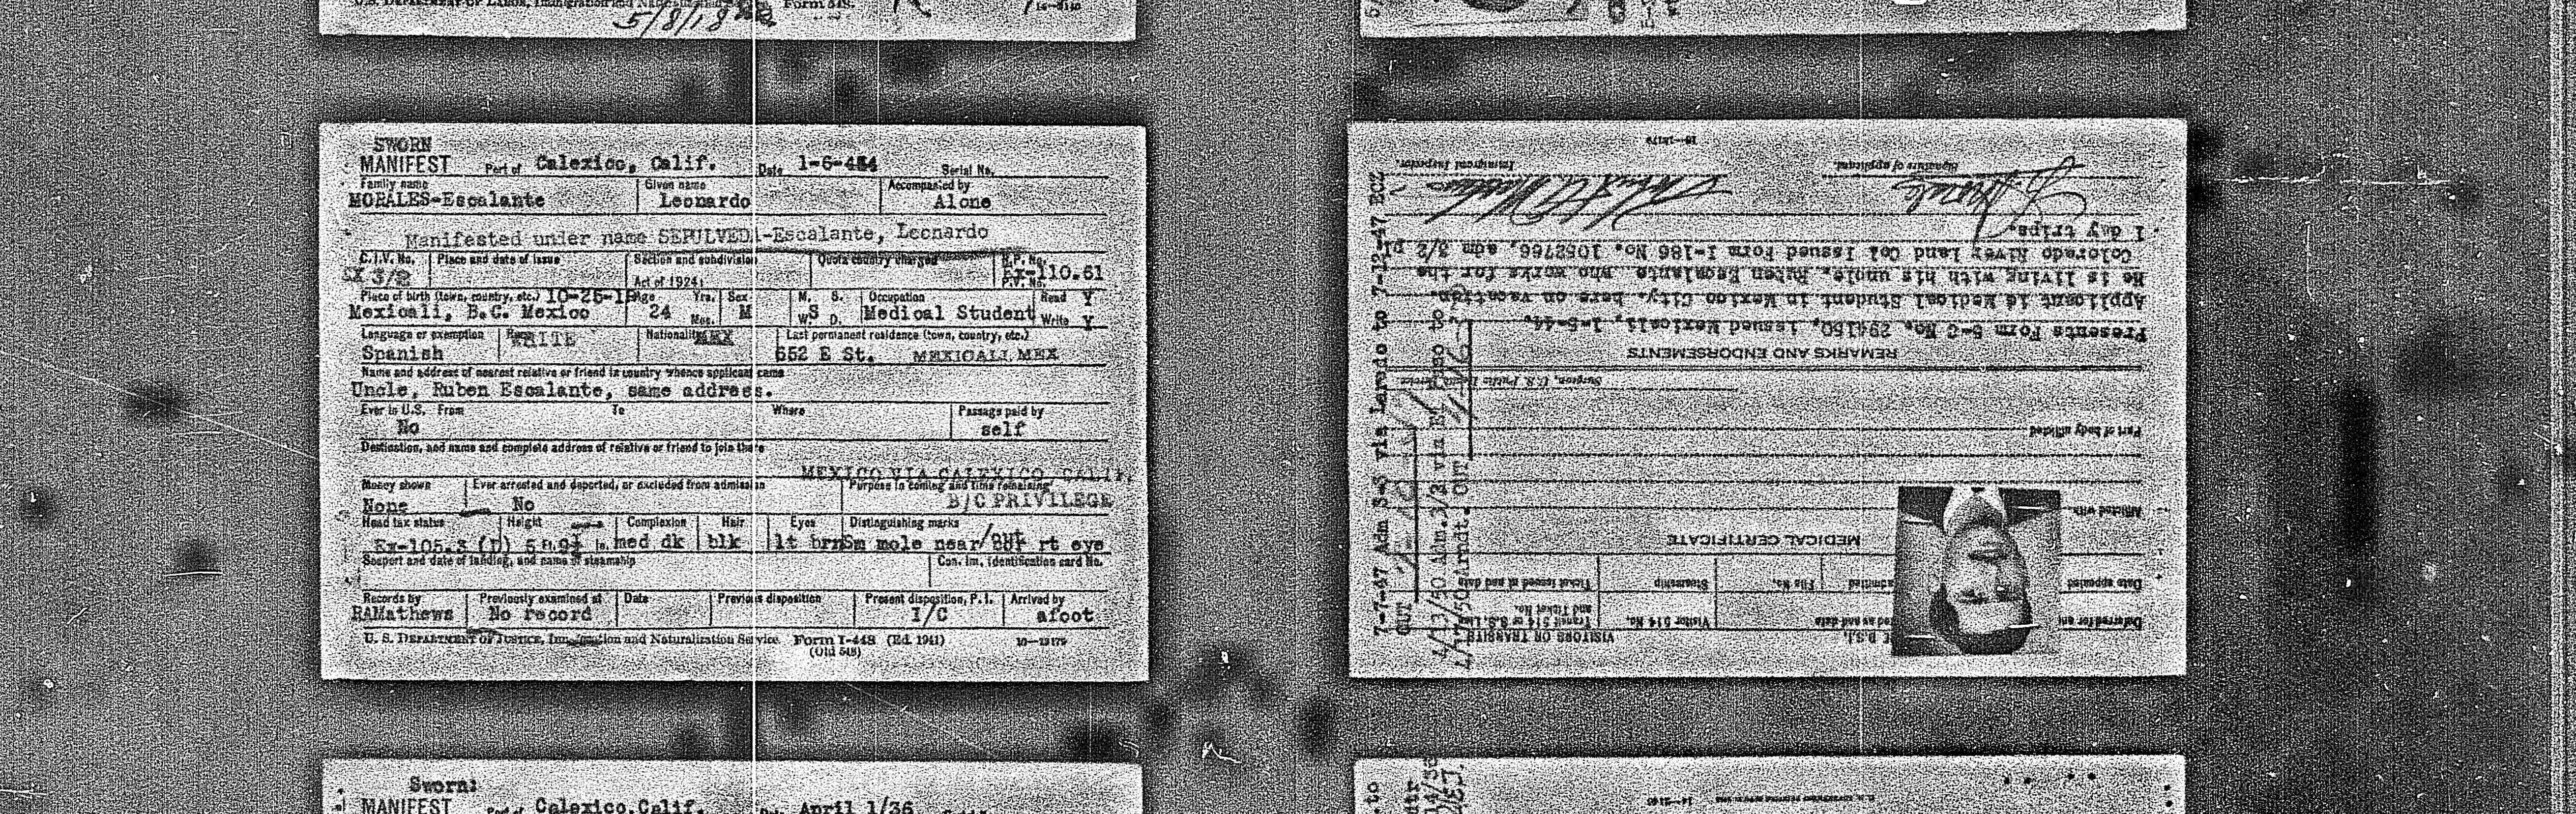 U.S. DEPARTMENT OF LABOR, Immigration and Form 548. 14-3140
5/8/18
SWORN
MANIFEST Port of Calexico, Calif. Date 1-6-44 Serial No.
Family name Given name Accompanied by
MORALES-Escalante Leonardo Alone
Manifested under name SEPULVEDA-Escalante, Leonardo
C.I.V. No. Place and date of issue Section and subdivision Quota country charged R.P. No.
EX 3/2 Act of 1924: Ex-110.61
P.V. No.
Place of birth (town, country, etc.) 10-26-19 Age Yrs. Sex M. S. Occupation Read Y
Mexicali, B.C. Mexico 24 Mos. M W. S D. Medical Student Write Y
Language or exemption Race WHITE Nationality MEX Last permanent residence (town, country, etc.)
Spanish 652 E St. MEXICALI, MEX
Name and address of nearest relative or friend in country whence applicant came
Uncle, Ruben Escalante, same address.
Ever in U.S. From To Where Passage paid by
No self
Destination, and name and complete address of relative or friend to join there
MEXICO VIA CALEXICO, CALIF.
Money shown Ever arrested and deported, or excluded from admission Purpose in coming and time remaining
None No B/C PRIVILEGE
Head tax status Height Complexion Hair Eyes Distinguishing marks
Ex-105.3 (D) 5 ft. 9½ in. med dk blk lt brn Sm mole near/out rt eye
Seaport and date of landing, and name of steamship Can. Im. Identification card No.
Records by Previously examined at Date Previous disposition Present disposition, P.I. Arrived by
RAMathews No record I/C afoot
U. S. DEPARTMENT OF JUSTICE, Immigration and Naturalization Service Form I-448 (Ed. 1941) 16-13179
(Old 548)
Sworn:
MANIFEST Port of Calexico, Calif. Date April 1/36
VISITORS OR TRANSITS
Deferred for Visitor 514 No. Transit 514 or S.S. Line and Ticket No.
Date appealed admitted File No. Steamship Ticket issued at and date
MEDICAL CERTIFICATE
Afflicted with
Part of body afflicted
Surgeon, U.S. Public Health Service
REMARKS AND ENDORSEMENTS
Presents Form 5-C No. 294150, issued Mexicali, 1-5-44.
Applicant is Medical Student in Mexico City, here on vacation.
He is living with his uncle, Ruben Escalante, who works for the
Colorado River Land Co. Issued Form I-186 No. 1052766, adm 3/2 pl
1 day trips.
Signature of applicant. Immigrant Inspector.
16-13179
7-7-47 Adm 3-3 via Laredo to 7-12-47 ECZ
OUT
4/13/50 Adm.3/2 via El Paso to
OUT